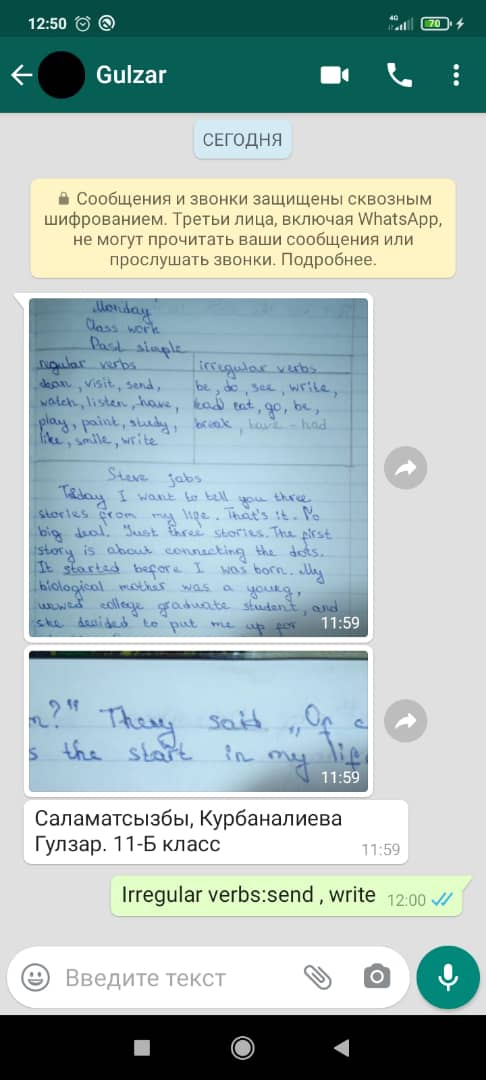 12:50
4G
70
Gulzar
СЕГОДНЯ
Сообщения и звонки защищены сквозным
шифрованием. Третьи лица, включая WhatsApp,
не могут прочитать ваши сообщения или
прослушать звонки. Подробнее.
Monday
Class work
Past simple
regular verbs
irregular verbs
visit, send,
be, do, see, write,
watch, listen, have,
eat, go, be,
play, paint, study,
break, have - had
like, smile, write
Steve jabs
Today I want to tell you three
stories from my life. That's it. No
big deal. Just three stories. The first
story is about connecting the dots.
It started before I was born. My
biological mother was a young,
college graduate student, and
she decided to put me up for
11:59
n?" They said „Of c
s the start in my lif
11:59
Саламатсызбы, Курбаналиева
Гулзар. 11-Б класс
11:59
Irregular verbs:send , write
12:00
Введите текст